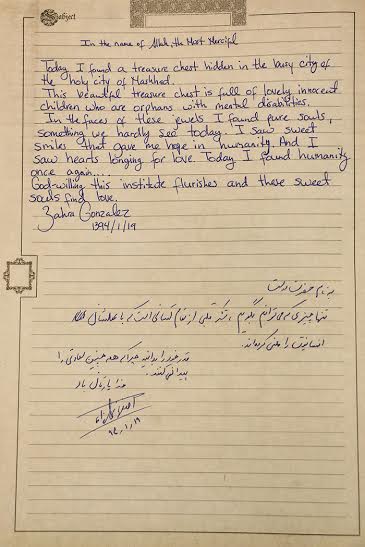 Subject
In the name of Allah, the Most Merciful
Today I found a treasure chest hidden in the busy city of
the holy city of Mashhad.
This beautiful treasure chest is full of lovely innocent
children who are orphans with mental disabilities.
In the faces of these jewels I found pure souls,
something we hardly see today. I saw sweet
smiles that gave me hope in humanity. And I
saw hearts longing for love. Today I found humanity
once again....
God-willing this institute flurishes and these sweet
souls find love.
Zahra Gonzalez
1394/1/19
به نام حضرت دوست
تنها چیزی که می‌توانم بگویم، تشکر قلبی از تمام کسانی است که با عملشان
انسانیت را معنی کرده‌اند.
قدر خود را بدانید چرا که همه چنین سعادتی را
پیدا نمی‌کنند.
خدا یارتان باد
۹۴,۱,۱۹